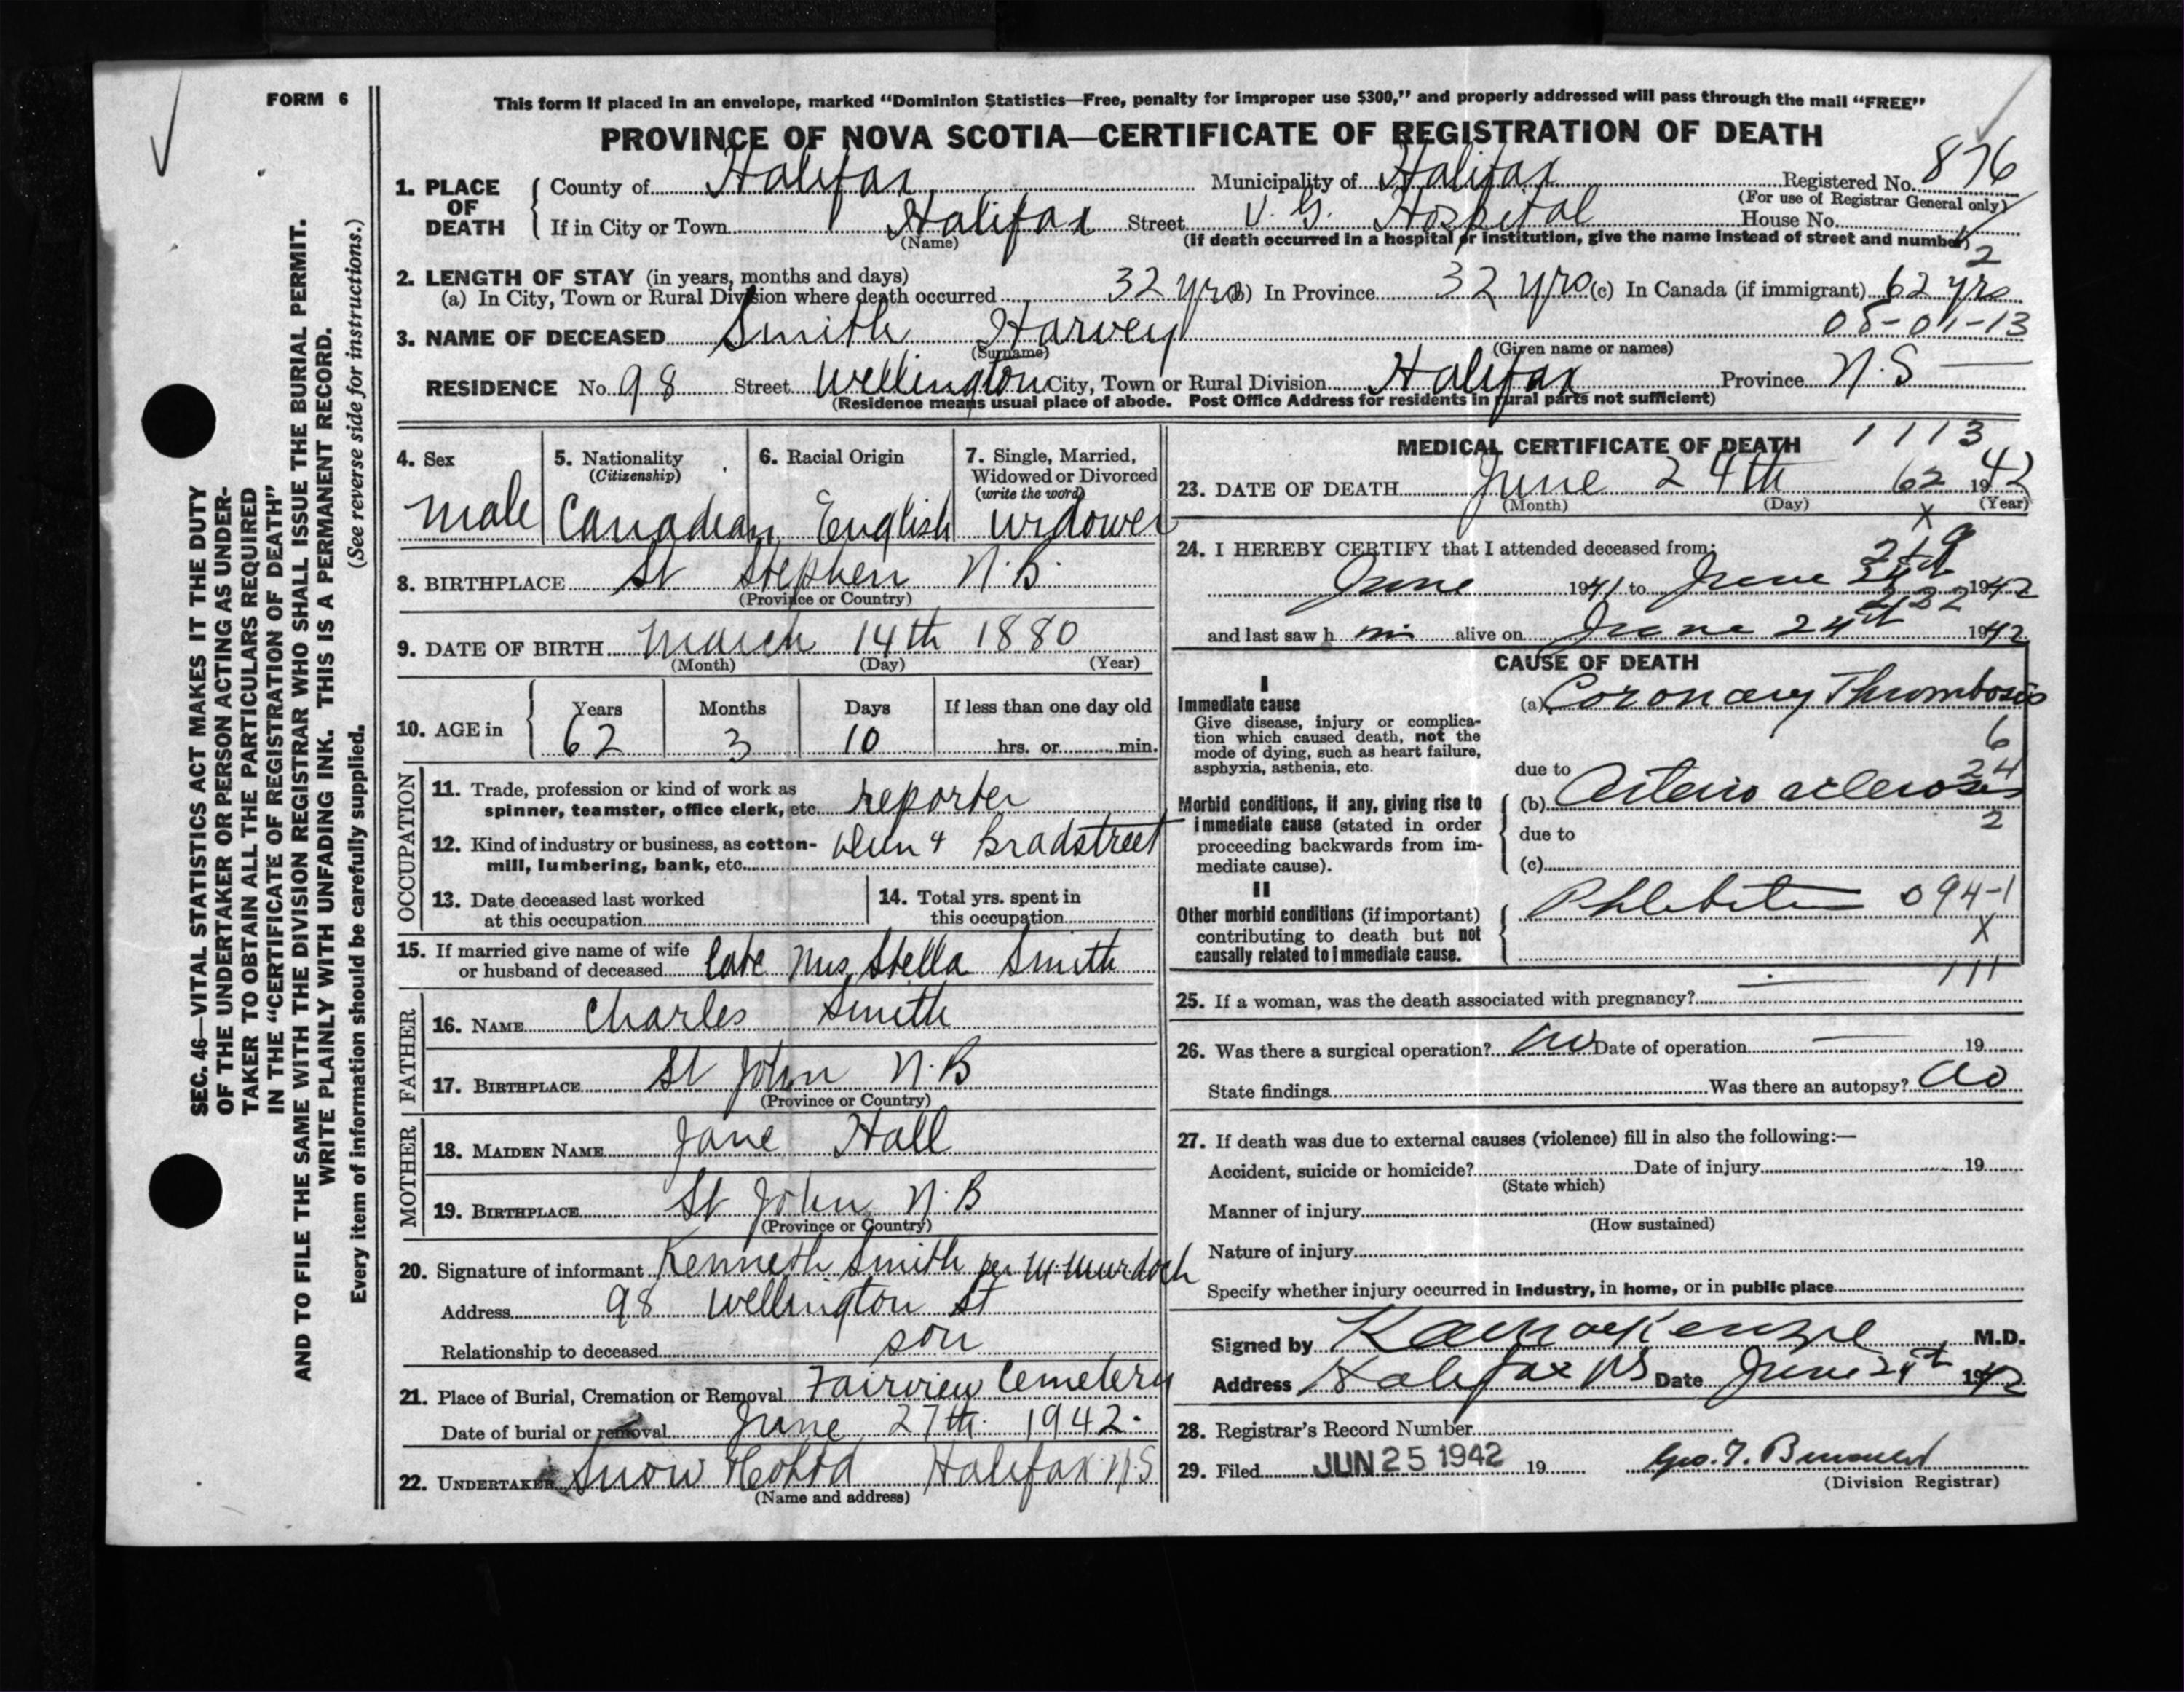 FORM 6
This form if placed in an envelope, marked "Dominion Statistics—Free, penalty for improper use $300," and properly addressed will pass through the mail "FREE"
PROVINCE OF NOVA SCOTIA—CERTIFICATE OF REGISTRATION OF DEATH
SEC. 46—VITAL STATISTICS ACT MAKES IT THE DUTY
OF THE UNDERTAKER OR PERSON ACTING AS UNDER-
TAKER TO OBTAIN ALL THE PARTICULARS REQUIRED
IN THE "CERTIFICATE OF REGISTRATION OF DEATH"
AND TO FILE THE SAME WITH THE DIVISION REGISTRAR WHO SHALL ISSUE THE BURIAL PERMIT.
WRITE PLAINLY WITH UNFADING INK. THIS IS A PERMANENT RECORD.
Every item of information should be carefully supplied. (See reverse side for instructions.)
1. PLACE OF DEATH County of Halifax Municipality of Halifax Registered No. 876
(For use of Registrar General only)
If in City or Town Halifax Street V. G. Hospital House No.
(Name) (If death occurred in a hospital or institution, give the name instead of street and number)
2
2. LENGTH OF STAY (in years, months and days)
(a) In City, Town or Rural Division where death occurred 32 yrs (b) In Province 32 yrs (c) In Canada (if immigrant) 62 yrs
08-01-13
3. NAME OF DECEASED Smith Harvey
(Surname) (Given name or names)
RESIDENCE No. 98 Street Wellington City, Town or Rural Division Halifax Province N.S
(Residence means usual place of abode. Post Office Address for residents in rural parts not sufficient)
4. Sex 5. Nationality (Citizenship) 6. Racial Origin 7. Single, Married, Widowed or Divorced (write the word)
male Canadian English widower
8. BIRTHPLACE St Stephen N.B.
(Province or Country)
9. DATE OF BIRTH March 14th 1880
(Month) (Day) (Year)
10. AGE in Years Months Days If less than one day old
62 3 10 hrs. or min.
OCCUPATION
11. Trade, profession or kind of work as
spinner, teamster, office clerk, etc. reporter
12. Kind of industry or business, as cotton-
mill, lumbering, bank, etc. Dun & Bradstreet
13. Date deceased last worked
at this occupation
14. Total yrs. spent in
this occupation
15. If married give name of wife
or husband of deceased late Mrs Stella Smith
FATHER
16. NAME Charles Smith
17. BIRTHPLACE St John N.B
(Province or Country)
MOTHER
18. MAIDEN NAME Jane Hall
19. BIRTHPLACE St John N.B
(Province or Country)
20. Signature of informant Kenneth Smith per M. Murdoch
Address 98 Wellington St
Relationship to deceased son
21. Place of Burial, Cremation or Removal Fairview Cemetery
Date of burial or removal June 27th 1942.
22. UNDERTAKER Snow Co Ltd Halifax N.S
(Name and address)
MEDICAL CERTIFICATE OF DEATH 1113
23. DATE OF DEATH June 24th 62 1942
(Month) (Day) (Year)
X
24. I HEREBY CERTIFY that I attended deceased from:
June 1941 to June 24th 1942
232
and last saw h im alive on June 24th 1942
CAUSE OF DEATH
I
Immediate cause
Give disease, injury or complica-
tion which caused death, not the
mode of dying, such as heart failure,
asphyxia, asthenia, etc.
(a) Coronary Thrombosis
6
24
due to
Morbid conditions, if any, giving rise to
immediate cause (stated in order
proceeding backwards from im-
mediate cause).
(b) Arterio sclerosis
2
due to
(c)
II
Other morbid conditions (if important)
contributing to death but not
causally related to immediate cause.
Phlebitis 094-1
X
111
25. If a woman, was the death associated with pregnancy?
26. Was there a surgical operation? no Date of operation 19
State findings Was there an autopsy? no
27. If death was due to external causes (violence) fill in also the following:—
Accident, suicide or homicide? Date of injury 19
(State which)
Manner of injury
(How sustained)
Nature of injury
Specify whether injury occurred in industry, in home, or in public place
Signed by MacKenzie M.D.
Address Halifax NS Date June 24th 1942
28. Registrar's Record Number
29. Filed JUN 25 1942 19 Geo. F.
(Division Registrar)